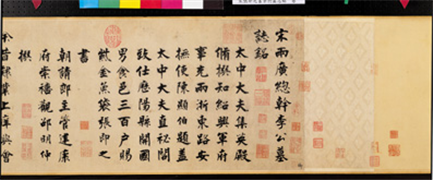 宋兩廣總幹李公墓
誌銘
太中大夫集英殿
脩撰知紹興軍府
事充兩浙東路安
撫使陳顯伯題蓋
太中大夫直祕閣
致仕歷陽縣開國
男食邑三百戶賜
紫金魚袋張即之
書
朝請郎主管建康
府崇禧觀邵明仲
撰
余昔肄業上庠與